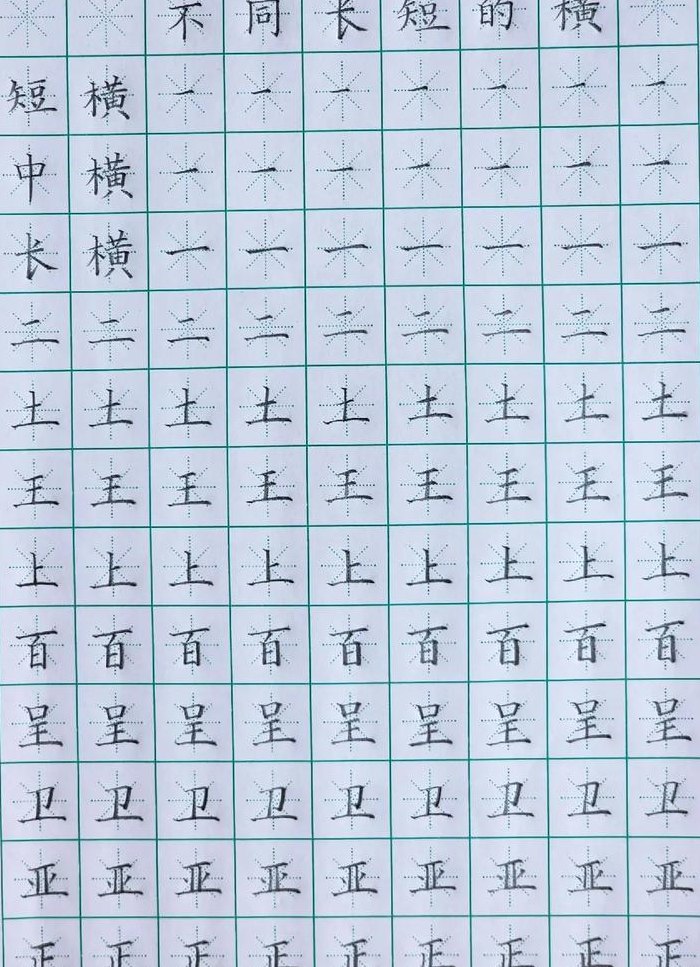 不同长短的横
短横一一一一一一一
中横一一一一一一一
长横一一一一一一一
二二二二二二二二二
土土土土土土土土土
王王王王王王王王王
上上上上上上上上上
百百百百百百百百百
呈呈呈呈呈呈呈呈呈
卫卫卫卫卫卫卫卫卫
亚亚亚亚亚亚亚亚亚
正正正正正正正正正